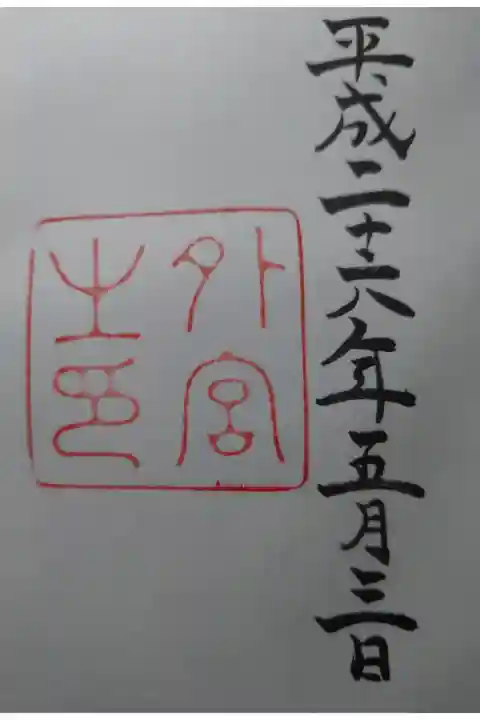 平成二十六年五月三日
外宮
之印